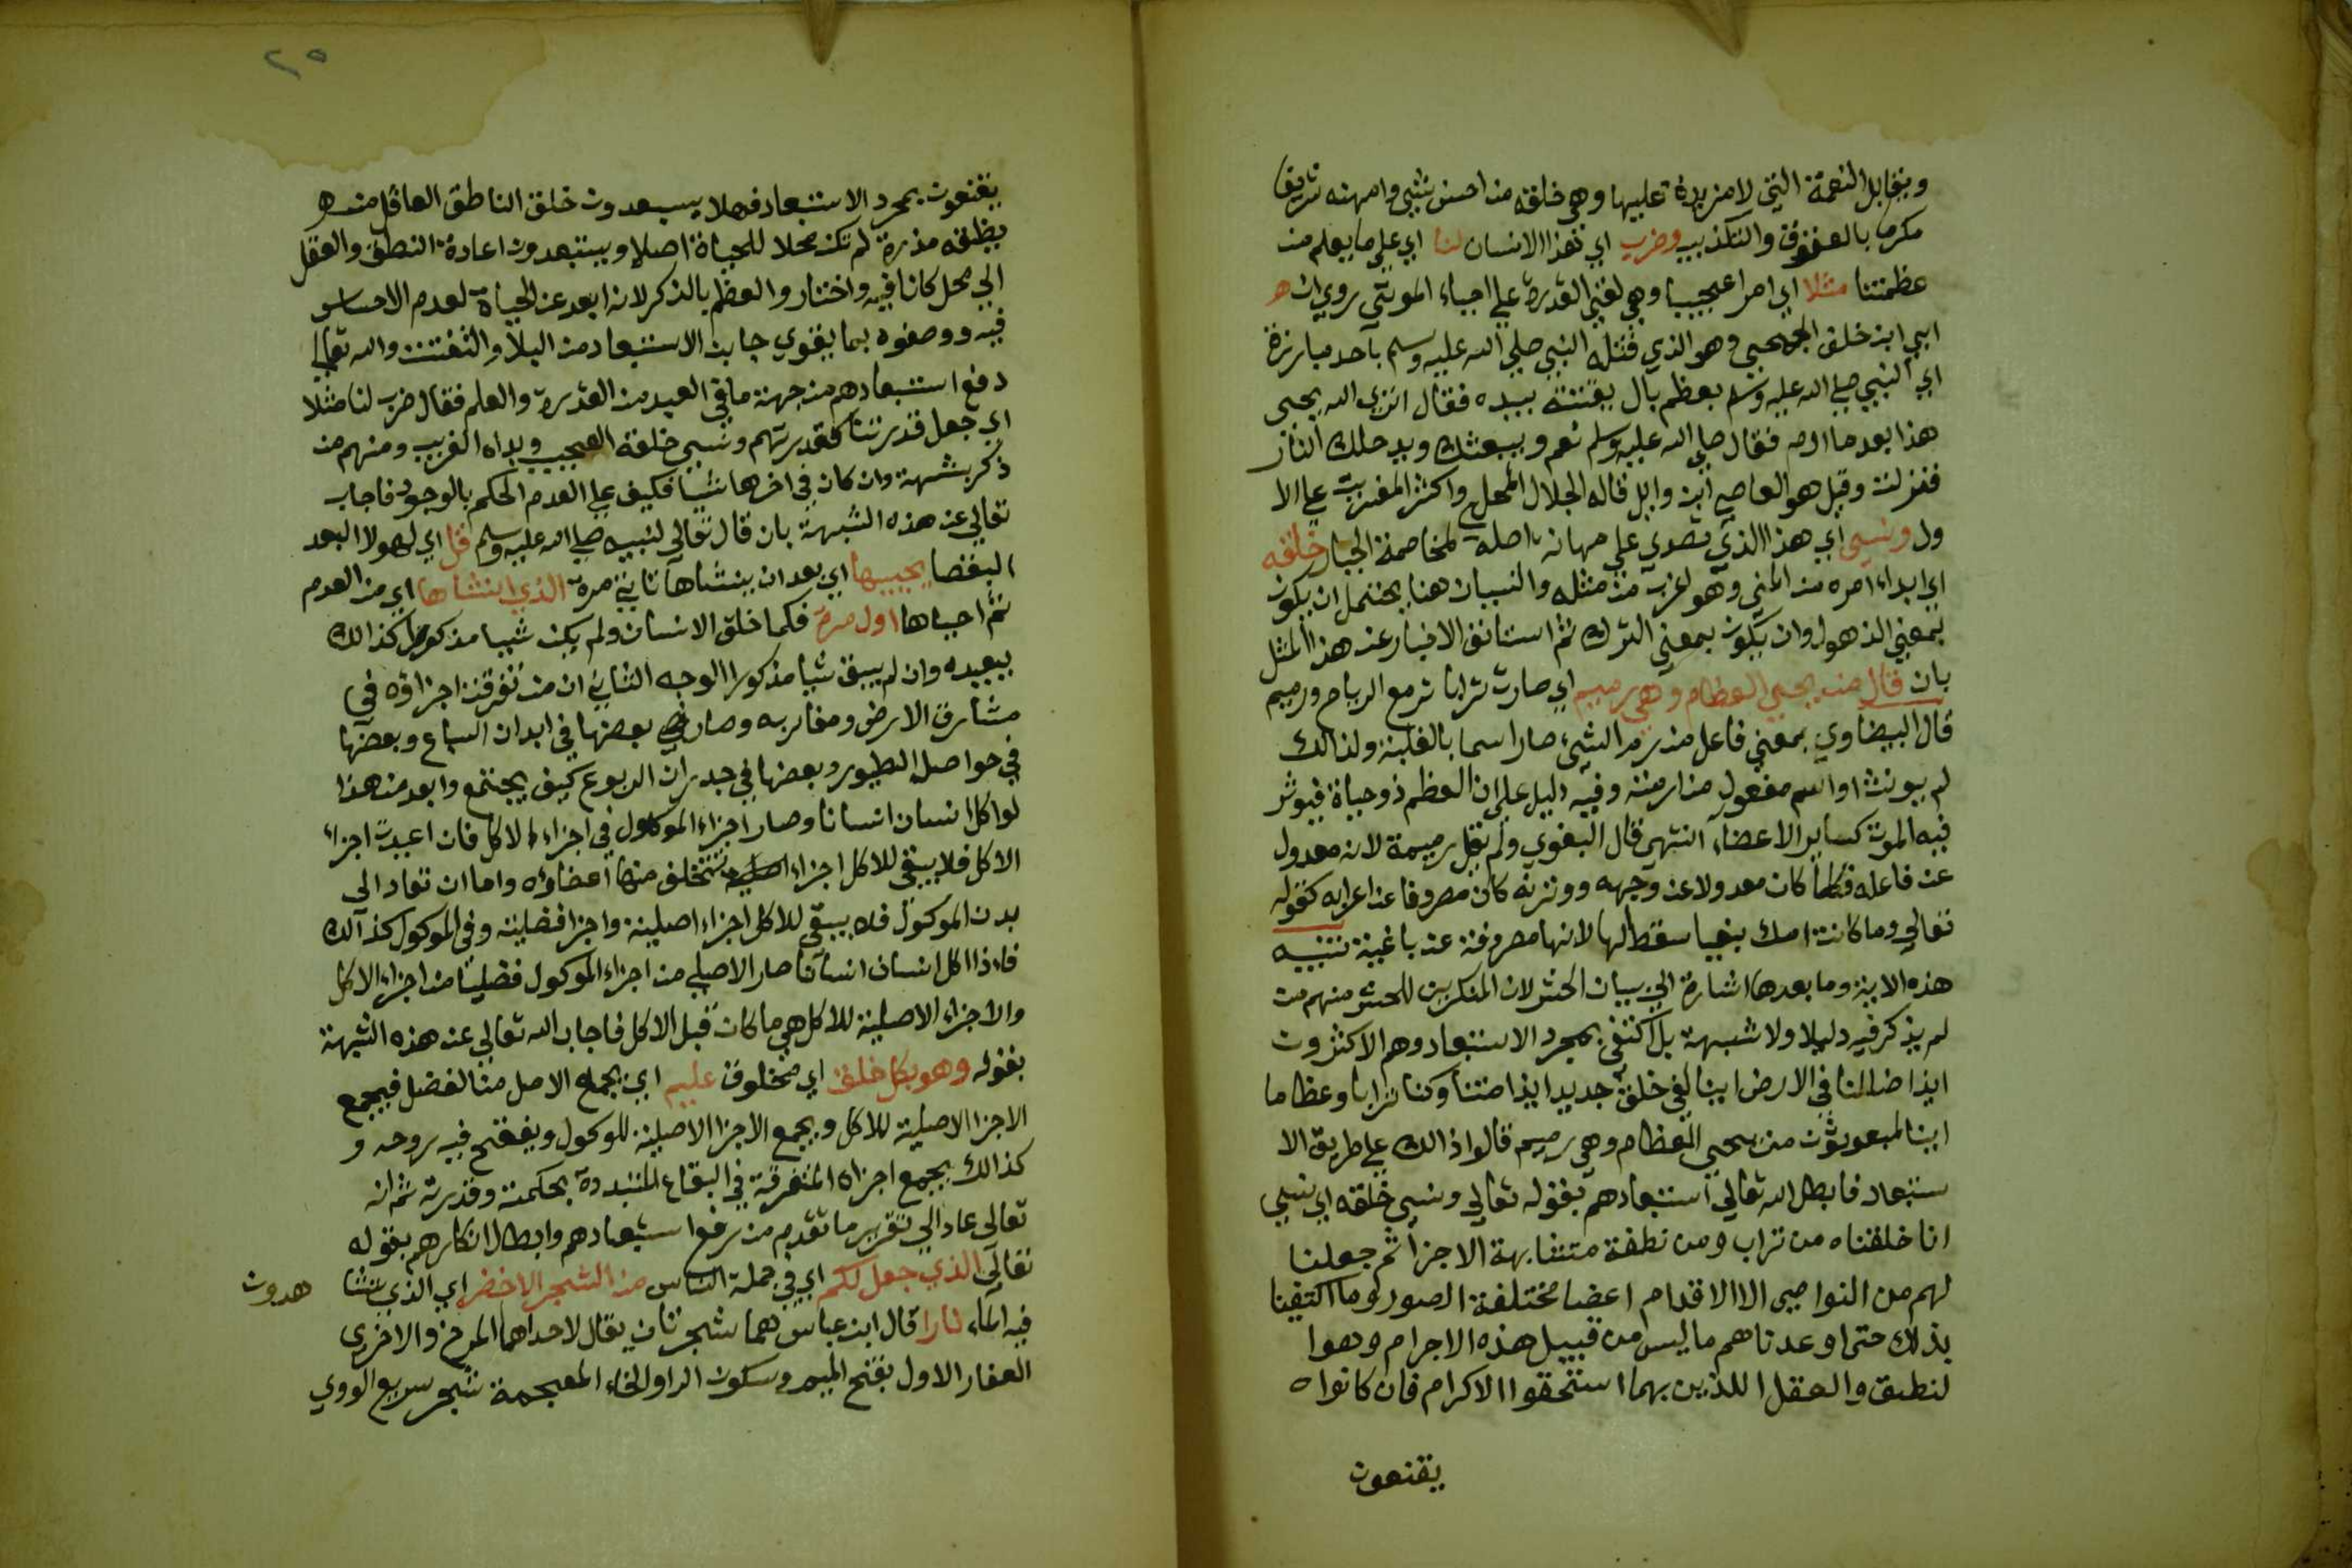 ويقابل النعمة التي لا مزيد عليها وهي خلقه من احسن شيء وامهنه شريفا
مكرما بالعقوق والتكذيب وضرب اي هذا الانسان لنا اي علي ما يعلم من
عظمتنا مثلا اي امرا عجيبا وهي نفي القدرة علي احياء الموتي روي ان
ابي ابن خلف الجمحي وهو الذي قتله النبي صلي الله عليه وسلم باحد مبارزة
اي النبي صلي الله عليه وسلم بعظم بال يفتته بيده فقال اتري الله يحيي
هذا بعد ما ارم فقال صلي الله عليه وسلم نعم ويبعثك ويدخلك النار
فنزلت وقيل هو العاصي ابن وايل قاله الجلال المحلي واكثر المفسرين علي الا
ول ونسي اي هذا الذي تصدي علي مهانة اصله لمخاصمة الجبار خلقه
اي ابداء امره من المني وهو اغرب من مثله والنسيان هنا يحتمل ان يكون
بمعني الذهول وان يكون بمعني الترك ثم استانف الاخبار عن هذا المثل
بان قال من يحيي العظام وهي رميم اي صارت ترابا تر مع الرياح ورميم
قال البيضاوي بمعني فاعل من رم الشيء صار اسما بالغلبة ولذالك
لم يونث او اسم مفعول من ارممته وفيه دليل علي ان العظم ذو حياة فيوثر
فيه الموت كساير الاعضاء انتهي قال البغوي ولم يقل رميمة لانه معدول
عن فاعله فكلما كان معدولا عن وجهه ووزنه كان مصروفا عن اعرابه كقوله
تعالي وما كانت امك بغيا سقط الها لانها مصروفة عن باغية تنبيه
هذه الاية وما بعدها اشارة الي بيان الحشر لان المنكرين للحشر منهم من
لم يذكر فيه دليلا ولا شبهة بل اكتفي بمجرد الاستبعاد وهم الاكثرون
ايذا ضللنا في الارض اينا لفي خلق جديد ايذا متنا وكنا ترابا وعظاما
اينا لمبعوثون من يحيي العظام وهي رميم قالوا ذالك علي طريق الا
ستبعاد فابطل الله تعالي استبعادهم بقوله تعالي ونسي خلقه اي نسي
انا خلقناه من تراب ومن نطفة متشابهة الاجزا ثم جعلنا
لهم من النواصي الا الاقدام اعضا مختلفة الصور وما اكتفينا
بذلك حتي اوعدناهم ما ليس من قبيل هذه الاجرام وهوا
لنطق والعقل اللذين بهما استحقوا الاكرام فان كانوا ه
يقنعون
٢٥
يقنعون بمجرد الاستبعاد فهلا يستبعدون خلق الناطق العاقل من
نطفة مذرة لم تكن محلا للحياة اصلا ويستبعدون اعادة النطق والعقل
الي محل كانا فيه واختاروا العظم بالذكر لانه ابعد عن الحياة لعدم الاحساس
فيه ووصفوه بما يقوي جانب الاستبعاد من البلا والتفتت والله تعالي
دفع استبعادهم من جهة ما في العبد من القدرة والعلم فقال ضرب لنا مثلا
اي جعل قدرتنا كقدرتهم ونسي خلقه العجيب وبداه الغريب ومنهم من
ذكر شبهة وان كان في اخرها شيا فكيف علي العدم الحكم بالوجود فاجاب
تعالي عن هذه الشبهة بان قال تعالي لنبيه صلي الله عليه وسلم قل اي لهولا البعد
البغضا يحييها اي بعد ان ينشاها ثانية مرة الذي انشاها اي من العدم
ثم احياها اول مرة فكما خلق الانسان ولم يكن شيا مذكورا كذالك
يعيده وان لم يبق شيا مذكورا الوجه الثاني ان من تفرقت اجزاؤه في
مشارق الارض ومغاربه وصار بعضها في ابدان السباع وبعضها
في حواصل الطيور وبعضها في جدران الربوع كيف يجتمع وابعد من هذا
لو اكل انسان انسانا وصار اجزاء الموكول في اجزاء الاكل فان اعيدت اجزاء
الاكل فلا يبقي للاكل اجزاء تتخلق منها اعضاؤه واما ان تعاد الي
بدن الموكول فلا يبقي للاكل اجزاء اصلية واجزا فضلية وفي الموكول كذالك
فاذا اكل انسان انسانا صار الاصلي من اجزاء الموكول فضليا من اجزاء الاكل
والاجزاء الاصلية للاكل هي ما كان قبل الاكل فاجاب الله تعالي عن هذه الشبهة
بقوله وهو بكل خلق اي مخلوق عليم اي يجمله الاصل من الفضل فيجمع
الاجزا الاصلية للاكل ويجمع الاجزا الاصلية للموكول وينفخ فيه روحه و
كذالك يجمع اجزاه المتفرقة في البقاع المتبددة بحكمته وقدرته ثم انه
تعالي عاد الي تقرير ما تقدم من رفع استبعادهم وابطال انكارهم بقوله
تعالي الذي جعل لكم اي في جملة الناس من الشجر الاخضر اي الذي تشا هدون
فيه الماء نارا قال ابن عباس هما شجرتان يقال لاحداهما المرخ والاخري
العفار الاول بفتح الميم وسكون الراو الخاء المعجمة شجر سريع الووي